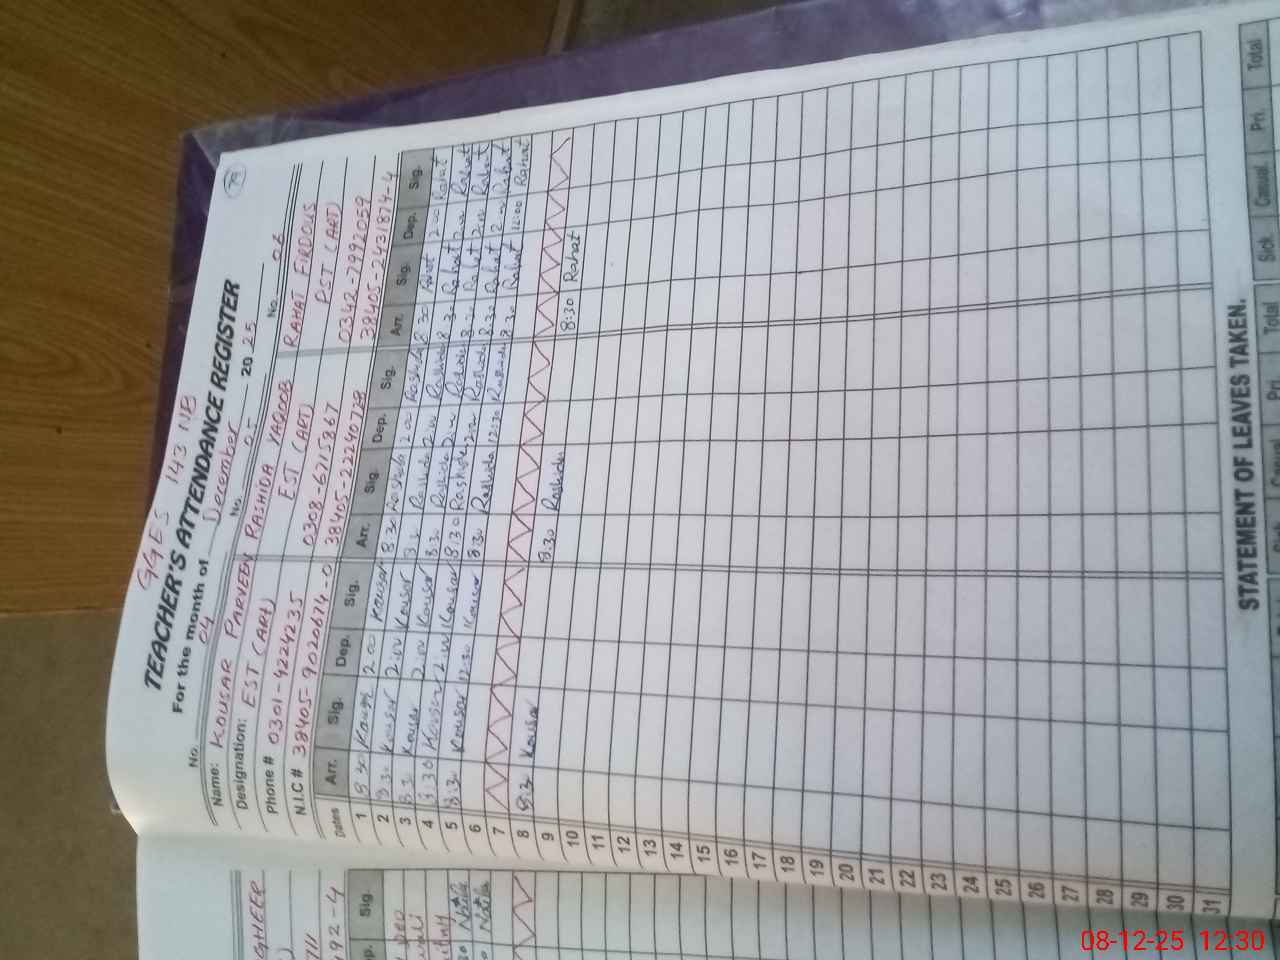 79
GGES 143 NB
TEACHER'S ATTENDANCE REGISTER
For the month of December 2025
No. 04 No. 05 No. 06
Name: KOUSAR PARVEEN RASHIDA YAQOOB RAHAT FIRDOUS
Designation: EST (ART) EST (ART) PST (ART)
Phone # 0301-4224235 0308-6715867 0342-7992059
N.I.C # 38405-9020674-0 38405-2224072-8 38405-2431874-4
Dates Arr. Sig. Dep. Sig. Arr. Sig. Dep. Sig. Arr. Sig. Dep. Sig.
1 8:30 Kousar 2:00 Kousar 8:30 Rashida 2:00 Rashida 8:30 Rahat 2:00 Rahat
2 8:30 Kousar 2:00 Kousar Rashida 2:00 Rashida 8:30 Rahat 2:00 Rahat
3 8:30 Kousar 2:00 Kousar 8:30 Rashida 2:00 Rashida 8:30 Rahat 2:00 Rahat
4 8:30 Kousar 2:00 Kousar 8:30 Rashida 2:00 Rashida 8:30 Rahat 2:00 Rahat
5 8:30 Kousar 12:30 Kousar 8:30 Rashida 12:30 Rashida 8:30 Rahat 12:00 Rahat
6
7
8 8:30 Kousar 8:30 Rashida 8:30 Rahat
9
10
11
12
13
14
15
16
17
18
19
20
21
22
23
24
25
26
27
28
29
30
31
STATEMENT OF LEAVES TAKEN.
Sick Casual Pri. Total
Pri. Total
GHEER
711
92-4
Sig
08-12-25 12:30